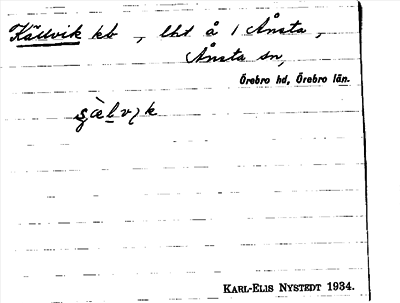 Källvik kb , lht å 1 Ånsta ,
Ånsta sn,
Örebro hd, Örebro län.
KARL-ELIS NYSTEDT 1934.